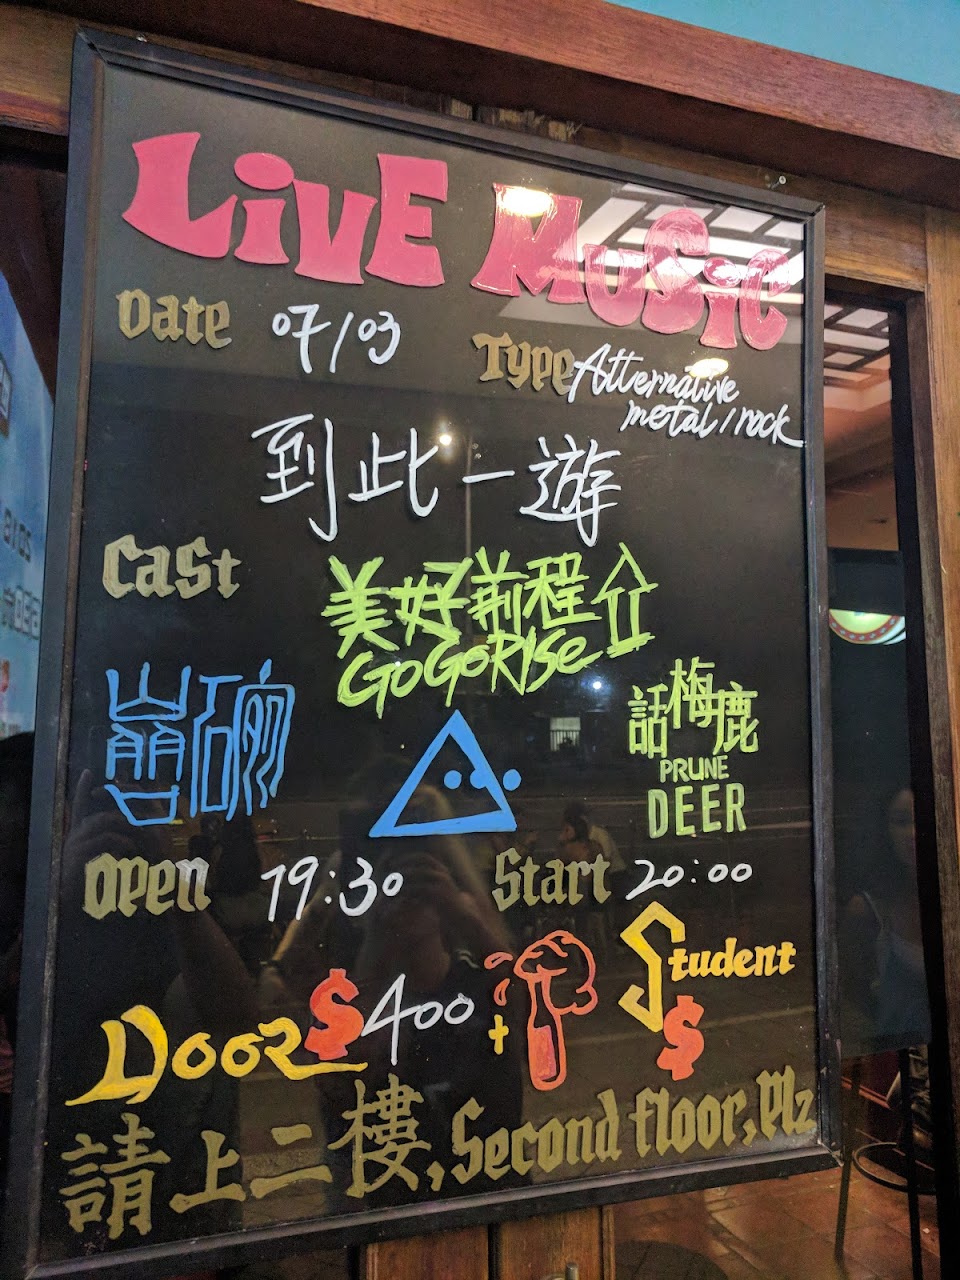 LiVE MUSiC
Date 07/03
Type Alternative
metal/rock
到此一遊
Cast
美好前程
GOGORISE
話梅鹿
PRUNE
DEER
Open 19:30
Start 20:00
Door $400
+
Student $
請上二樓, Second floor, Plz